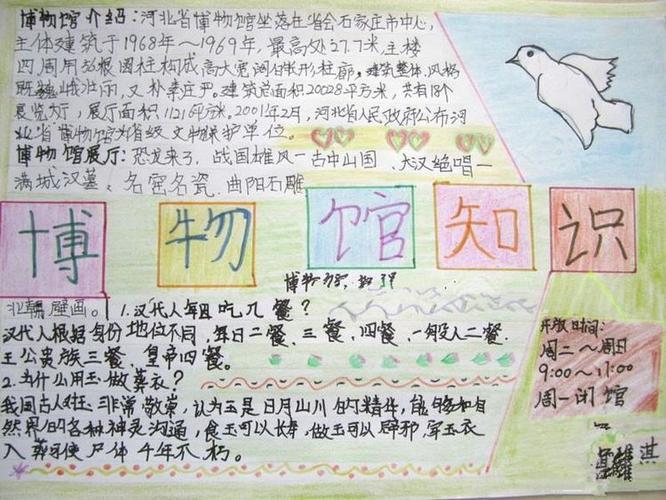 博物馆介绍：河北省博物馆坐落在省会石家庄市中心，
主体建筑于1968年～1969年，最高处27.7米，主楼
四周用 根圆柱构成高大宽阔 形柱廊，建筑整体风格
既巍峨壮丽，又朴素庄严。建筑总面积20028平方米，共有18个
展览大厅，展厅面积1121平方米。2001年2月，河北省人民政府公布河
北省博物馆为省级文物保护单位。
博物馆展厅：恐龙来了、战国雄风—古中山国、大汉绝唱—
满城汉墓、名窑名瓷、曲阳石雕
博物馆知识
北朝壁画。1.汉代人每日吃几餐？
汉代人根据身份地位不同，每日二餐、三餐、四餐，一般人二餐.
王公贵族三餐，皇帝四餐。
2.为什么用玉做葬衣？
我国古人对玉非常敬崇，认为玉是日月山川的精华，能够和自
然界的各种神灵沟通，食玉可以长寿，做玉可以辟邪，穿玉衣
入葬可使尸体千年不朽。
开放时间：
周二～周日
9:00～17:00
周一闭馆
淇